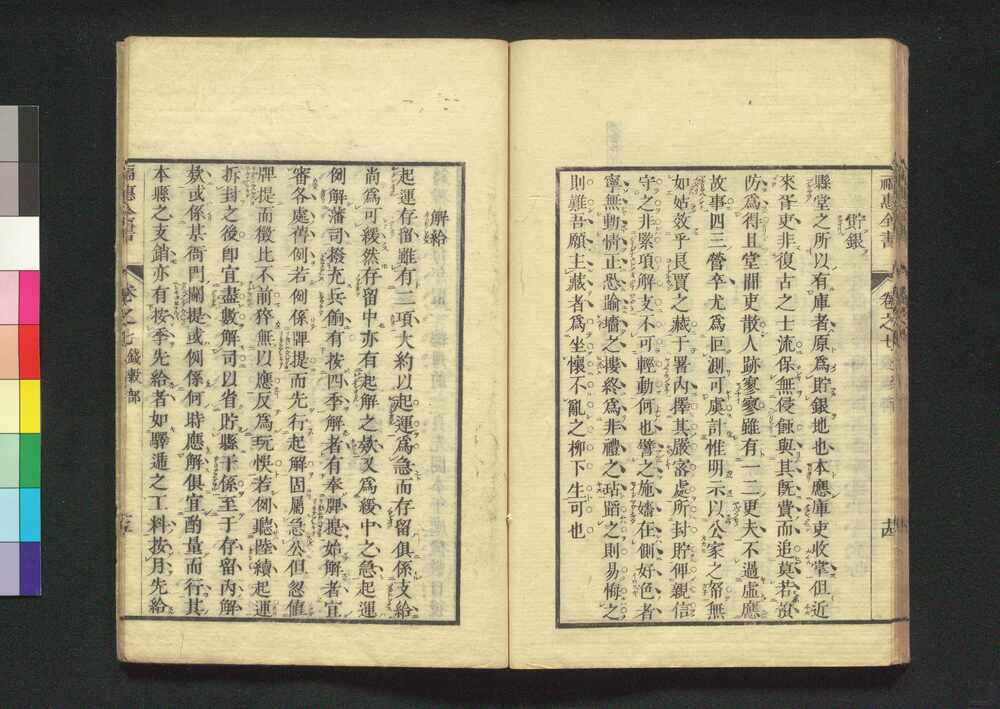 福惠全書 卷之七 十四
貯銀
縣堂之所以有庫者原爲貯銀地也本應庫吏收掌但近
來胥吏非復古之士流保無侵蝕與其旣費而追莫若預
防爲得且堂閒吏散人跡寥寥雖有一二更夫不過虛應
故事四三營卒尤爲叵測可虞計惟明示以公家之帑無
如姑效乎艮賈之藏于署內擇其嚴密處所封貯俾親信
守之非緊項解支不可輕動何也譬之施嬙在側好色者
寧無動情正恐踰墻之摟終爲非禮之玷賂之則易悔之
則難吾願主藏者爲坐懷不亂之柳下生可也
解給
起運存留雖有二項大約以起運爲急而存留俱係支給
尚爲可緩然存留中亦有起解之欵又爲緩中之急起運
例解藩司撥充兵餉有按四季解者有奉牌提始解者宜
審各處舊例若例係牌提而先行起解固屬急公但忽値
牌提而徵比不前猝無以應反爲玩悞若例聽陸續起運
拆封之後卽宜盡數解司以省貯縣干係至于存留內解
欵或係某衙門關提或例係何時應解俱宜酌量而行其
本縣之支銷亦有按季先給者如驛遞之工料按月先給
福惠全書 卷之七 錢穀部